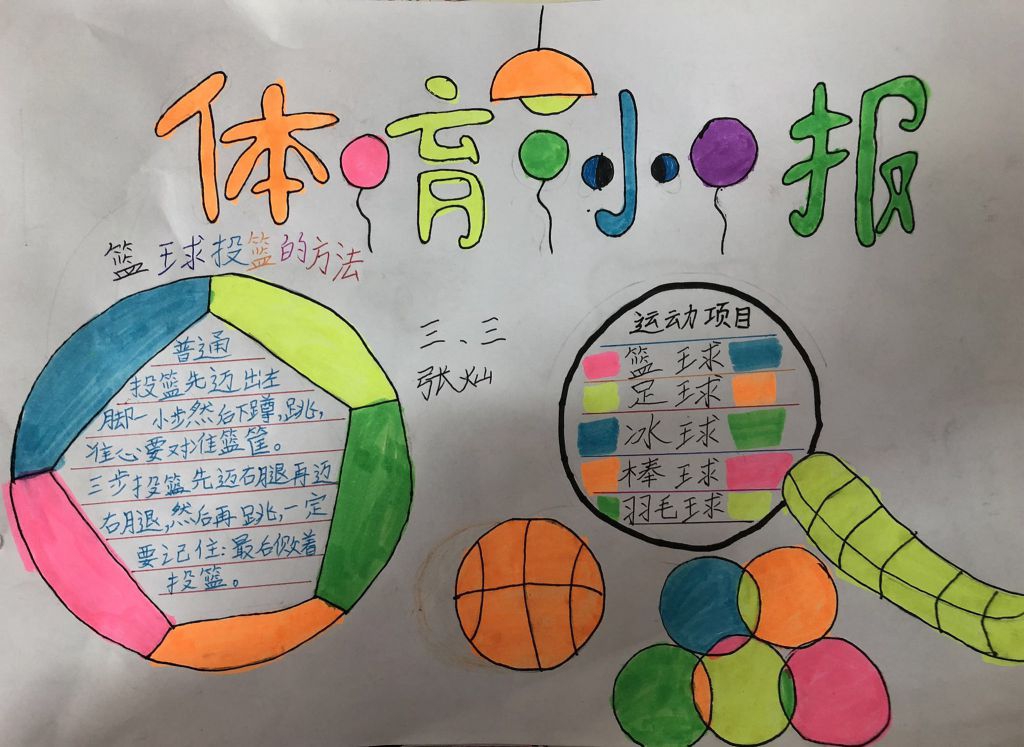 体育小报
篮球投篮的方法
普通
投篮先迈出左
脚一小步然后下蹲,跳,
准心要对准篮筐。
三步投篮先迈右腿再迈
右腿,然后再跳,一定
要记住:最后做着
投篮。
三、三
张灿
运动项目
篮球
足球
冰球
棒球
羽毛球